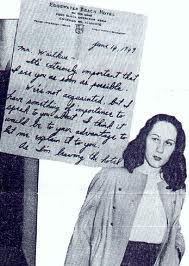 EDGEWATER BEACH HOTEL
CHICAGO 40, ILLINOIS
June 14, 1949
Mr. Waitkus -
It's extremely important that
I see you as soon as possible
We're not acquainted, but I
have something of importance to
speak to you about. I think it
would be to your advantage to
let me explain it to you
As I'm leaving the hotel